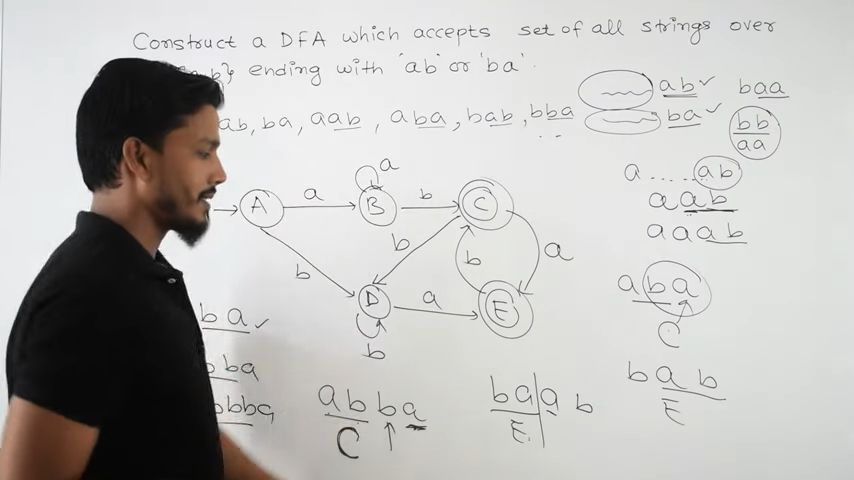 Construct a DFA which accepts set of all strings over
a,b} ending with 'ab' or 'ba'.
ab, ba, aab, aba, bab, bba
ab
ba
baa
bb
aa
a.....ab
aab
aaab
aba
C
bab
E
A a B a b C
b b b a
D a E
b
ba
bba
bbba
abba
C
baab
E